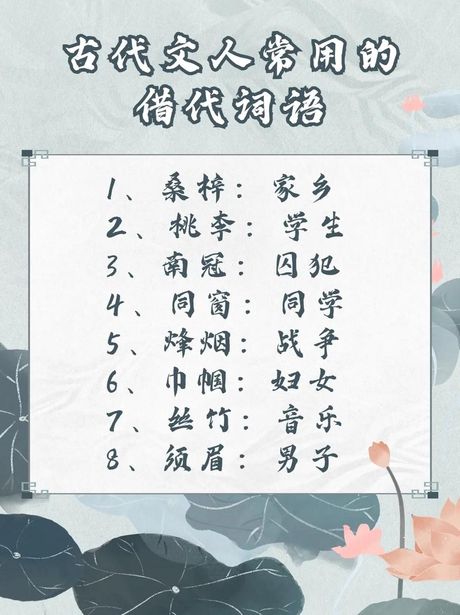 古代文人常用的
借代词语
1、桑梓：家乡
2、桃李：学生
3、南冠：囚犯
4、同窗：同学
5、烽烟：战争
6、巾帼：妇女
7、丝竹：音乐
8、须眉：男子